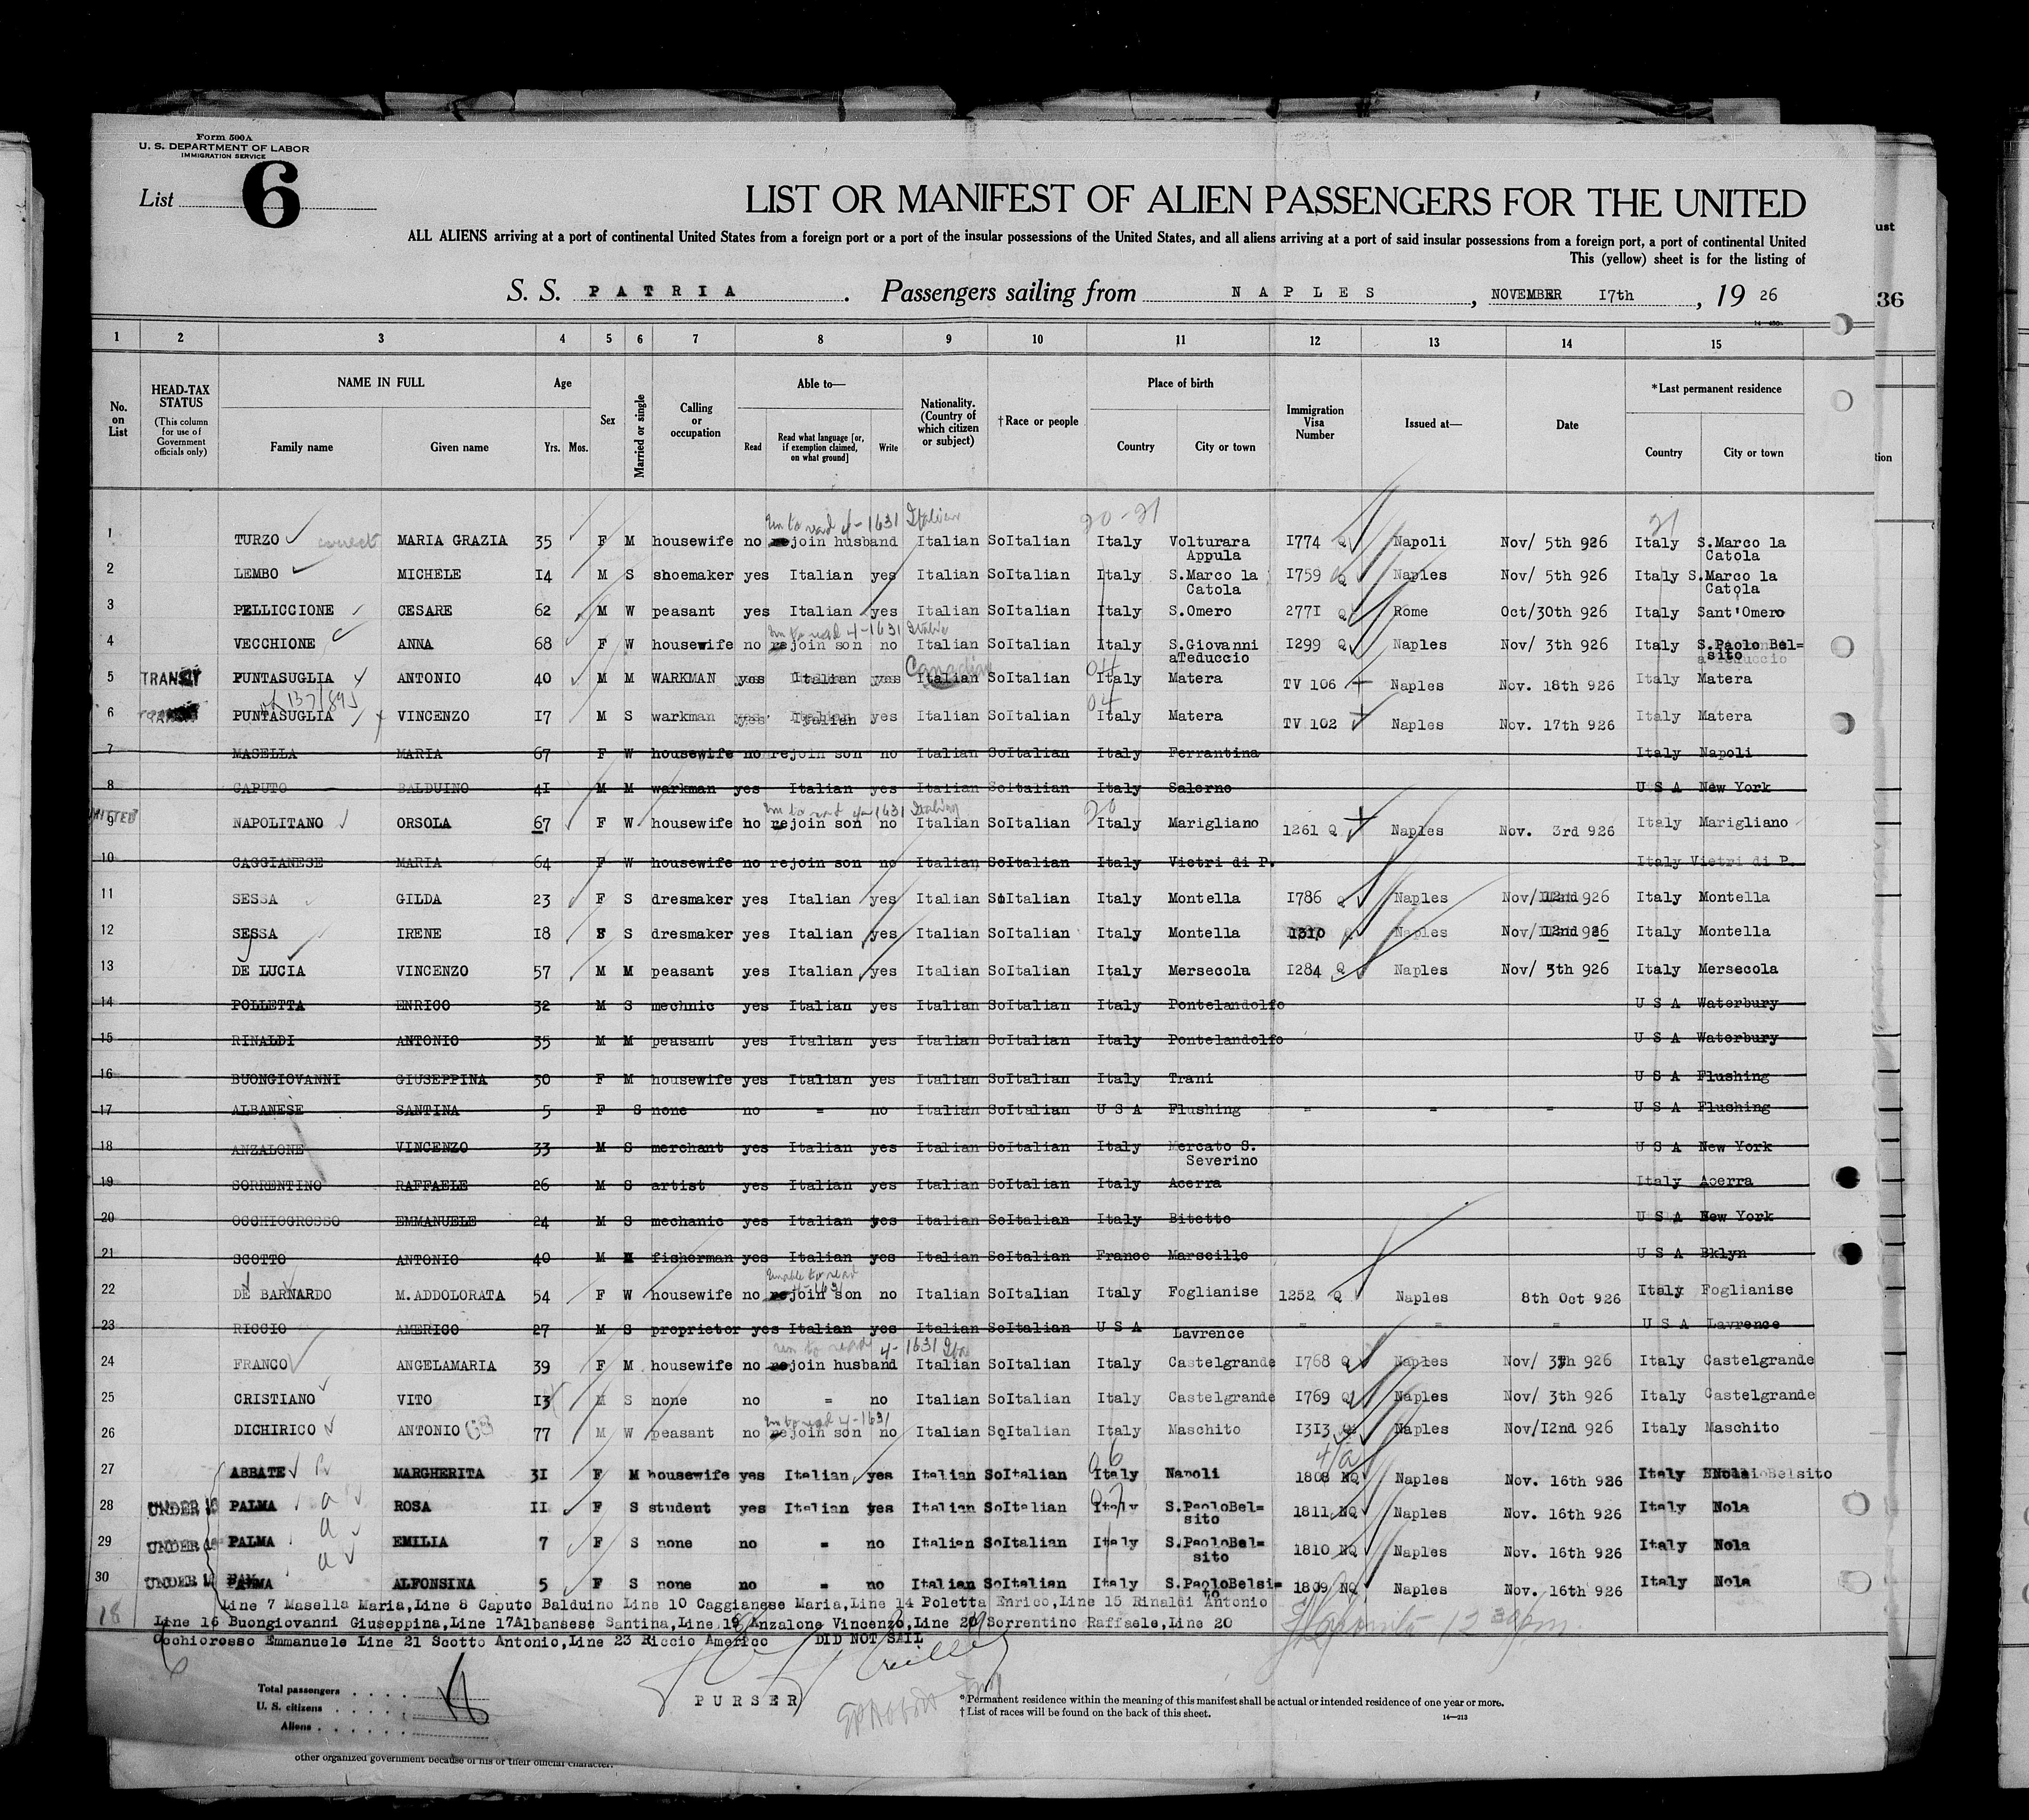 Form 500A
U. S. DEPARTMENT OF LABOR
IMMIGRATION SERVICE
List 6
LIST OR MANIFEST OF ALIEN PASSENGERS FOR THE UNITED
ALL ALIENS arriving at a port of continental United States from a foreign port or a port of the insular possessions of the United States, and all aliens arriving at a port of said insular possessions from a foreign port, a port of continental United
This (yellow) sheet is for the listing of
S. S. PATRIA . Passengers sailing from NAPLES , NOVEMBER 17th , 19 26
ust
36
tion
1 2 3 4 5 6 7 8 9 10 11 12 13 14 15
No. on List
HEAD-TAX STATUS (This column for use of Government officials only)
NAME IN FULL
Family name Given name
Age
Yrs. Mos.
Sex
Married or single
Calling or occupation
Able to—
Read Read what language [or, if exemption claimed, on what ground] Write
Nationality. (Country of which citizen or subject)
†Race or people
Place of birth
Country City or town
Immigration Visa Number
Issued at—
Date
*Last permanent residence
Country City or town
to read 4-1631 Italian 20-21 21
1 TURZO correct MARIA GRAZIA 35 F M housewife no rejoin husband Italian SoItalian Italy Volturara Appula 1774 Q Napoli Nov/ 5th 926 Italy S.Marco la Catola
2 LEMBO MICHELE 14 M S shoemaker yes Italian yes Italian SoItalian Italy S.Marco la Catola 1759 Q Naples Nov/ 5th 926 Italy S.Marco la Catola
3 PELLICCIONE CESARE 62 M W peasant yes Italian yes Italian SoItalian Italy S.Omero 2771 Q Rome Oct/30th 926 Italy Sant'Omero
to read 4-1631
4 VECCHIONE ANNA 68 F W housewife no rejoin son no Italian SoItalian Italy S.Giovanni aTeduccio 1299 Q Naples Nov/ 3th 926 Italy S.Paolo Bel= sito
Canadian 04
5 TRANSIT PUNTASUGLIA ANTONIO 40 M M WARKMAN yes Italian yes Italian SoItalian Italy Matera TV 106 Naples Nov. 18th 926 Italy Matera
04
6 PUNTASUGLIA VINCENZO 17 M S warkman yes Italian yes Italian SoItalian Italy Matera TV 102 Naples Nov. 17th 926 Italy Matera
7 MASELLA MARIA 67 F W housewife no rejoin son no Italian SoItalian Italy Ferrantina Italy Napoli
8 CAPUTO BALDUINO 41 M M warkman yes Italian yes Italian SoItalian Italy Salerno U S A New York
to read 4-1631 Italian 20
9 NAPOLITANO ORSOLA 67 F W housewife no rejoin son no Italian SoItalian Italy Marigliano 1261 Q Naples Nov. 3rd 926 Italy Marigliano
10 CAGGIANESE MARIA 64 F W housewife no rejoin son no Italian SoItalian Italy Vietri di P. Italy Vietri di P.
11 SESSA GILDA 23 F S dresmaker yes Italian yes Italian SoItalian Italy Montella 1786 Q Naples Nov/12nd 926 Italy Montella
12 SESSA IRENE 18 F S dresmaker yes Italian yes Italian SoItalian Italy Montella 1310 Q Naples Nov/12nd 926 Italy Montella
13 DE LUCIA VINCENZO 57 M M peasant yes Italian yes Italian SoItalian Italy Mersecola 1284 Q Naples Nov/ 5th 926 Italy Mersecola
14 POLLETTA ENRICO 32 M S mechnic yes Italian yes Italian SoItalian Italy Pontelandolfo U S A Waterbury
15 RINALDI ANTONIO 35 M M peasant yes Italian yes Italian SoItalian Italy Pontelandolfo U S A Waterbury
16 BUONGIOVANNI GIUSEPPINA 30 F M housewife yes Italian yes Italian SoItalian Italy Trani U S A Flushing
17 ALBANESE SANTINA 5 F S none no = no Italian SoItalian U S A Flushing = = = U S A Flushing
18 ANZALONE VINCENZO 33 M S merchant yes Italian yes Italian SoItalian Italy Mercato S. Severino U S A New York
19 SORRENTINO RAFFAELE 26 M S artist yes Italian yes Italian SoItalian Italy Acerra Italy Acerra
20 OCCHIOGROSSO EMMANUELE 24 M S mechanic yes Italian yes Italian SoItalian Italy Bitetto U S A New York
21 SCOTTO ANTONIO 40 M M fisherman yes Italian yes Italian SoItalian France Marseille U S A Bklyn
Unable to read 4-1631
22 DE BARNARDO M.ADDOLORATA 54 F W housewife no rejoin son no Italian SoItalian Italy Foglianise 1252 Q Naples 8th Oct 926 Italy Foglianise
23 RICCIO AMERICO 27 M S proprietor yes Italian yes Italian SoItalian U S A Lavrence = = = U S A Lavrence
to read 4-1631 Ita
24 FRANCO ANGELAMARIA 39 F M housewife no rejoin husband Italian SoItalian Italy Castelgrande 1768 Q Naples Nov/ 3th 926 Italy Castelgrande
25 CRISTIANO VITO 13 M S none no = no Italian SoItalian Italy Castelgrande 1769 Q Naples Nov/ 3th 926 Italy Castelgrande
to read 4-1631
26 DICHIRICO ANTONIO 77 M W peasant no rejoin son no Italian SoItalian Italy Maschito 1313 Q Naples Nov/12nd 926 Italy Maschito
27 ABBATE MARGHERITA 31 F M housewife yes Italian yes Italian SoItalian Italy Napoli 1808 NQ Naples Nov. 16th 926 Italy Nola
28 UNDER 16 PALMA ROSA 11 F S student yes Italian yes Italian SoItalian Italy S.PaoloBel= sito 1811 NQ Naples Nov. 16th 926 Italy Nola
29 UNDER 16 PALMA EMILIA 7 F S none no = no Italian SoItalian Italy S.PaoloBel= sito 1810 NQ Naples Nov. 16th 926 Italy Nola
30 UNDER 16 PALMA ALFONSINA 5 F S none no = no Italian SoItalian Italy S.PaoloBelsi= to 1809 NQ Naples Nov. 16th 926 Italy Nola
18
Line 7 Masella Maria,Line 8 Caputo Balduino Line 10 Caggianese Maria,Line 14 Poletta Enrico,Line 15 Rinaldi Antonio
Line 16 Buongiovanni Giuseppina,Line 17Albansese Santina,Line 18 Anzalone Vincenzo,Line 19 Sorrentino Raffaele,Line 20
Occhiorosso Emmanuele Line 21 Scotto Antonio,Line 23 Riccio Americo DID NOT SAIL
Total passengers
U. S. citizens
Aliens
PURSER
* Permanent residence within the meaning of this manifest shall be actual or intended residence of one year or more.
† List of races will be found on the back of this sheet.
14—213
other organized government because of his or their official character.